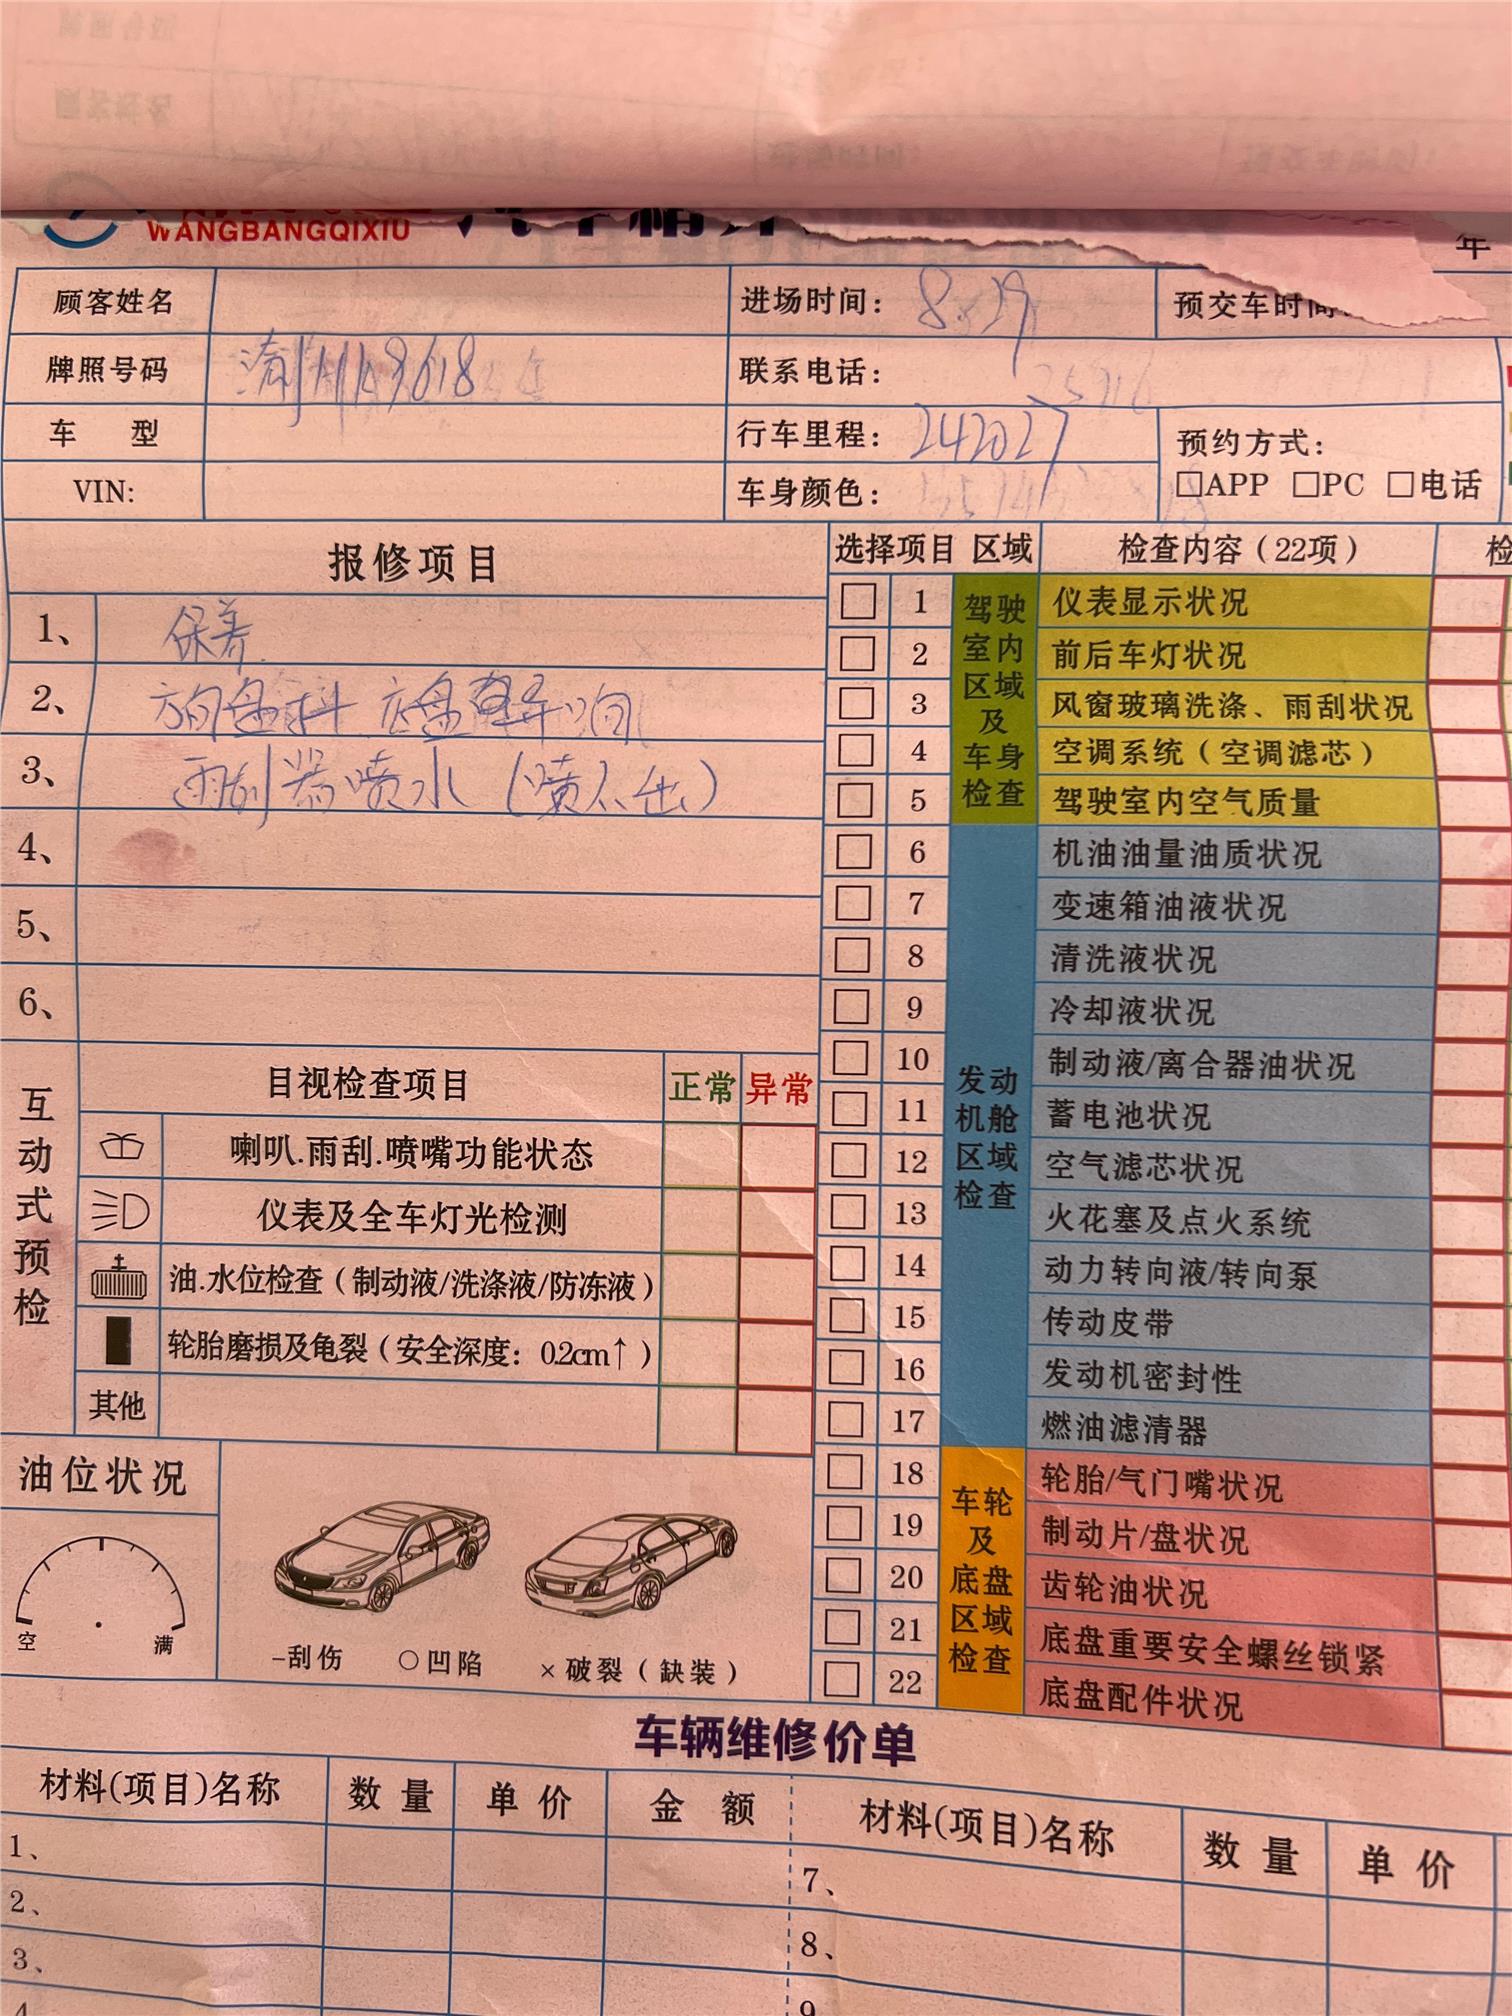 WANGBANGQIXIU
年
顾客姓名 进场时间: 8.29 预交车时间:
牌照号码 联系电话:
车 型 行车里程: 242027 预约方式:
VIN: 车身颜色: □APP □PC □电话
报修项目 选择项目 区域 检查内容（22项） 检
1、 保养
2、 方向盘抖 底盘异响
3、 雨刮器喷水（喷不出）
4、
5、
6、
驾驶室内区域及车身检查
□ 1 仪表显示状况
□ 2 前后车灯状况
□ 3 风窗玻璃洗涤、雨刮状况
□ 4 空调系统（空调滤芯）
□ 5 驾驶室内空气质量
发动机舱区域检查
□ 6 机油油量油质状况
□ 7 变速箱油液状况
□ 8 清洗液状况
□ 9 冷却液状况
□ 10 制动液/离合器油状况
□ 11 蓄电池状况
□ 12 空气滤芯状况
□ 13 火花塞及点火系统
□ 14 动力转向液/转向泵
□ 15 传动皮带
□ 16 发动机密封性
□ 17 燃油滤清器
车轮及底盘区域检查
□ 18 轮胎/气门嘴状况
□ 19 制动片/盘状况
□ 20 齿轮油状况
□ 21 底盘重要安全螺丝锁紧
□ 22 底盘配件状况
互动式预检
目视检查项目 正常 异常
喇叭.雨刮.喷嘴功能状态
仪表及全车灯光检测
油.水位检查（制动液/洗涤液/防冻液）
轮胎磨损及龟裂（安全深度：0.2cm↑）
其他
油位状况
空 满
–刮伤 ○凹陷 ×破裂（缺装）
车辆维修价单
材料(项目)名称 数量 单价 金额 材料(项目)名称 数量 单价
1、 7、
2、 8、
3、 9
4